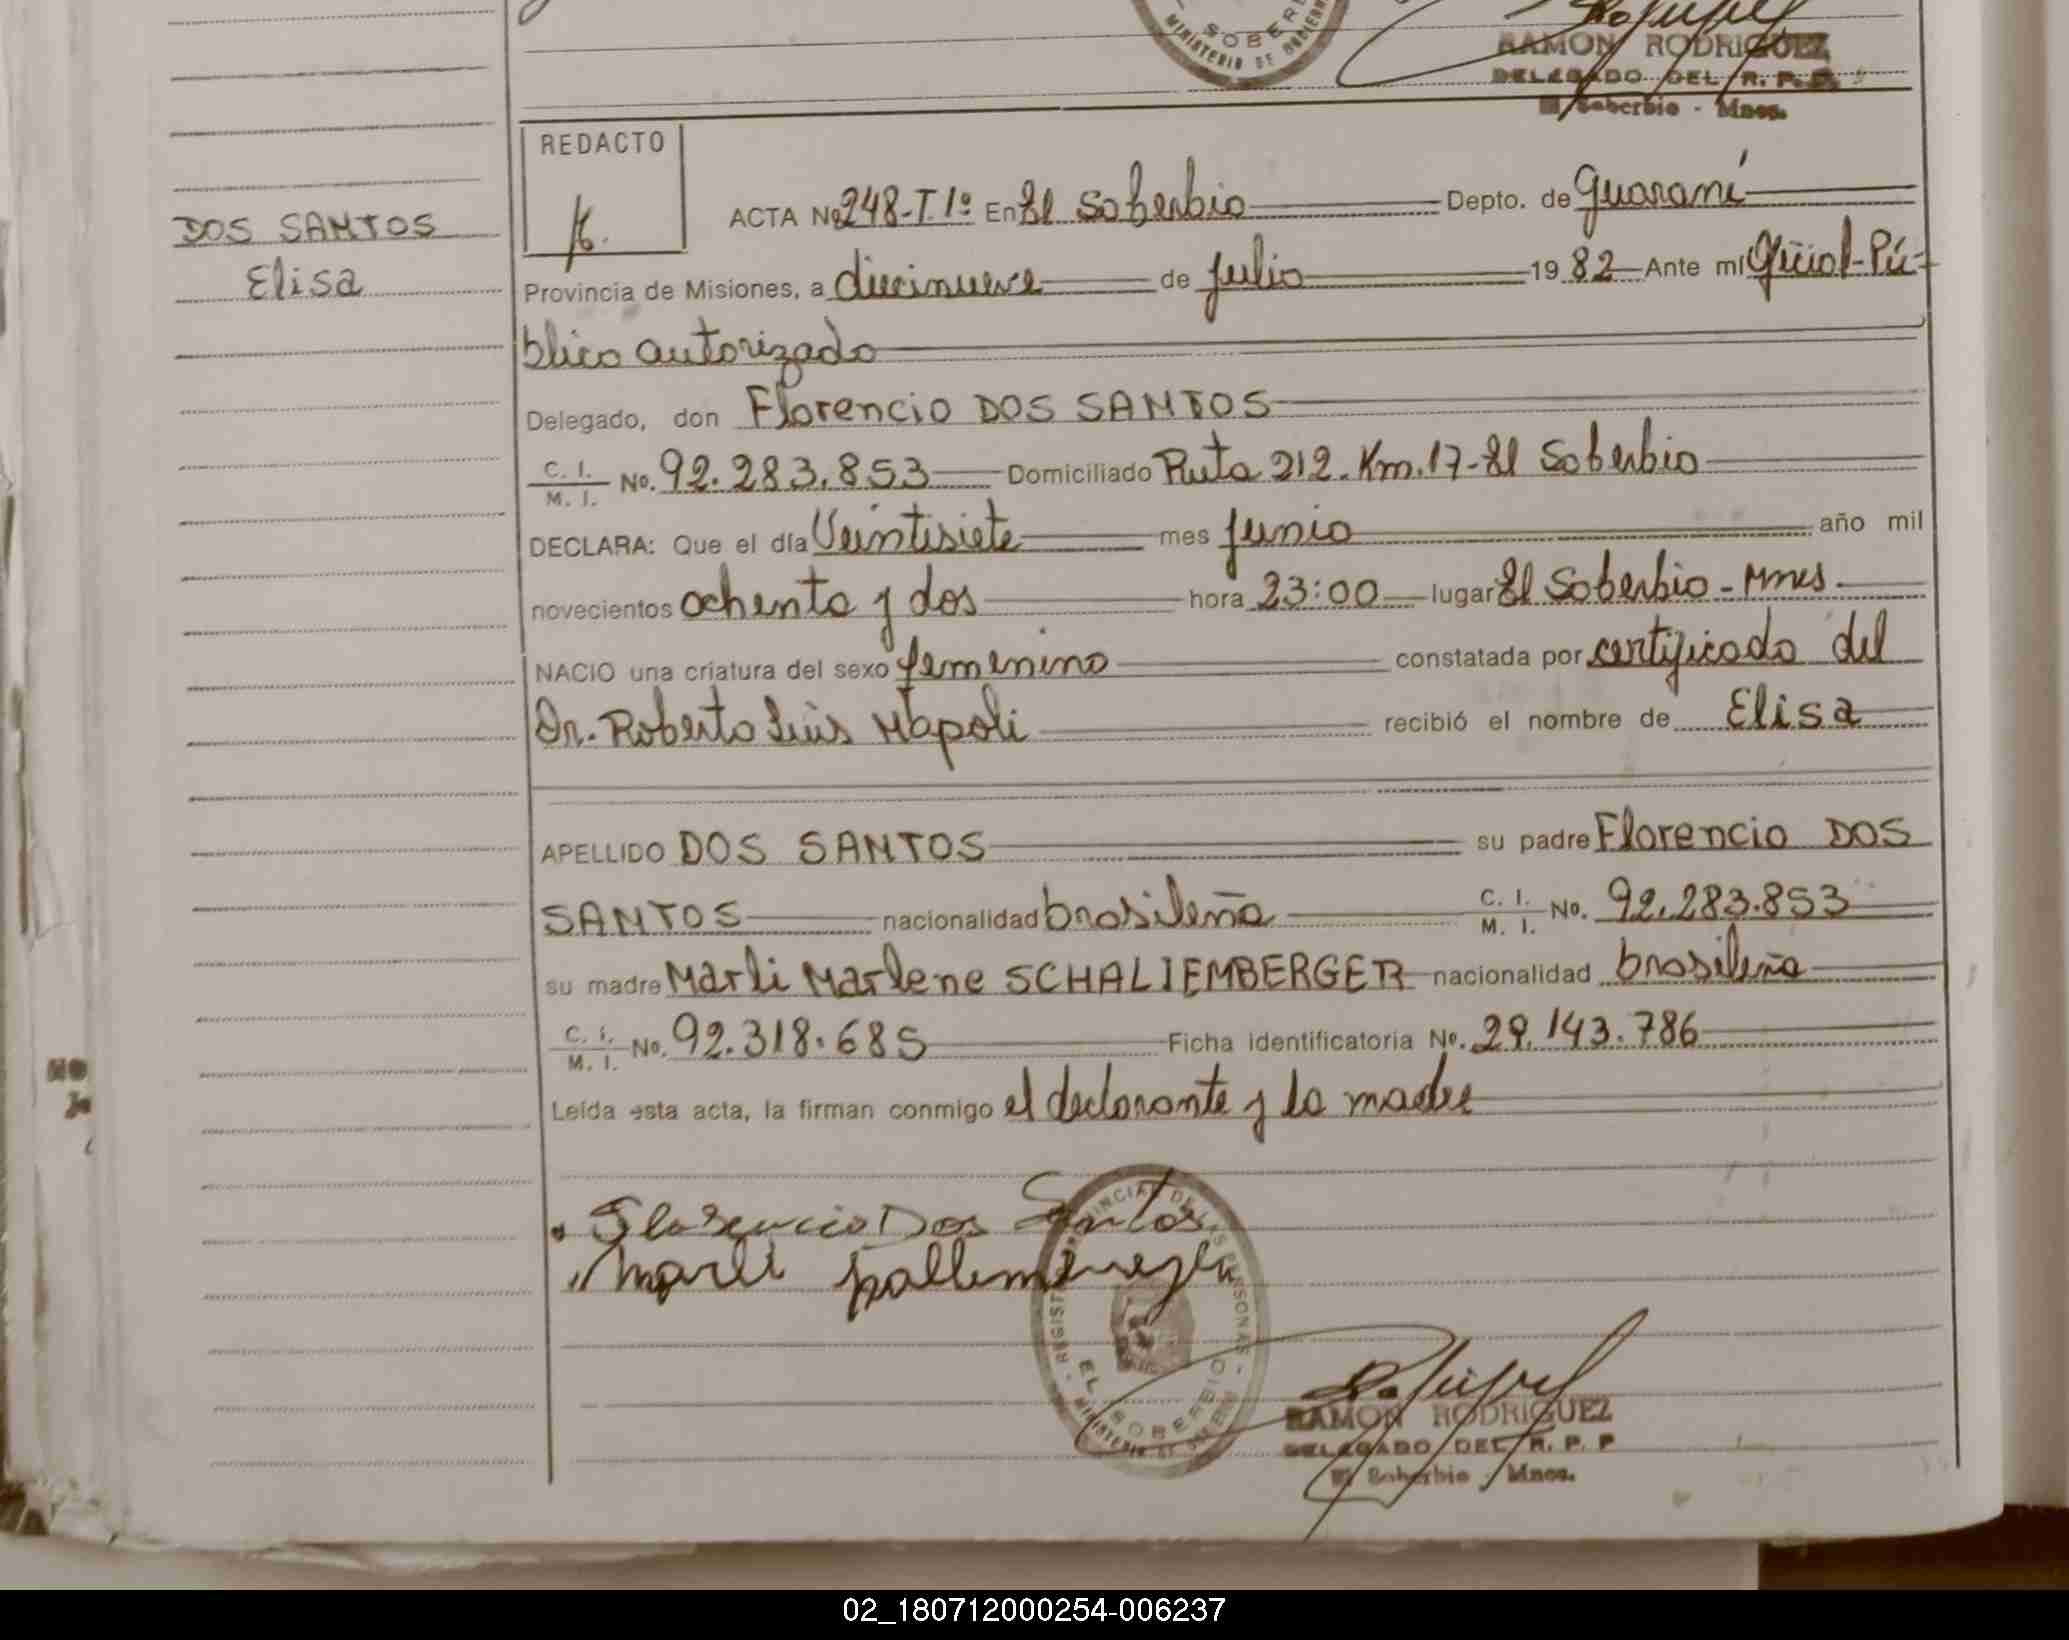 SOBER
MINISTERIO DE GOBIERN
RAMON RODRIGUEZ
DELEGADO DEL R. P. P.
El Soberbio - Mnes.
REDACTO
DOS SANTOS
Elisa
ACTA No 248-T.1º En El Soberbio Depto. de Guaraní
Provincia de Misiones, a diecinueve de Julio 19 82 Ante mí Oficial Pú-
blico autorizado
Delegado, don Florencio DOS SANTOS
C. I. / M. I. No. 92.283.853 Domiciliado Ruta 212-Km.17-El Soberbio
DECLARA: Que el día Veintisiete mes Junio año mil
novecientos ochenta y dos hora 23:00 lugar El Soberbio - Mnes
NACIO una criatura del sexo femenino constatada por certificado del
Dr. Roberto Luis Napoli recibió el nombre de Elisa
APELLIDO DOS SANTOS su padre Florencio DOS
SANTOS nacionalidad brasileña C. I. / M. I. No. 92.283.853
su madre Marli Marlene SCHALIEMBERGER nacionalidad brasileña
C. I. / M. I. No. 92.318.685 Ficha identificatoria No. 29.143.786
Leída esta acta, la firman conmigo el declarante y la madre
Florencio Dos Santos
Marli
EL SOBERBIO
RAMON RODRIGUEZ
DELEGADO DEL R. P. P
El Soberbio - Mnes.
02_180712000254-006237